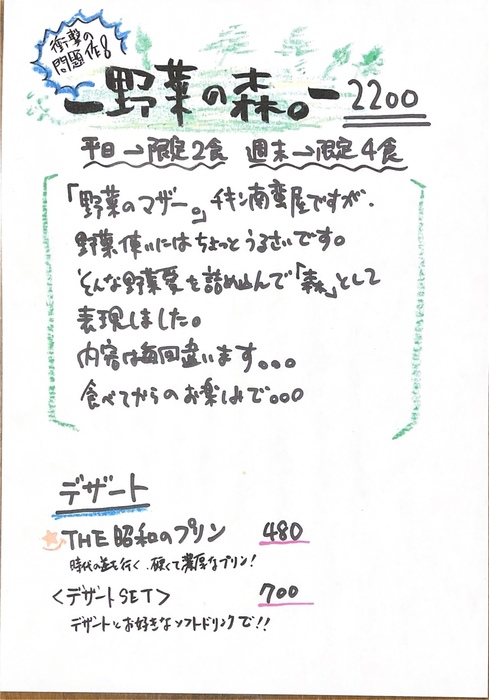 衝撃の
問題作!
-野菜の森。- 2200
平日→限定2食 週末→限定4食
「野菜のマザー。」チキン南蛮屋ですが、
野菜使いにはちょっとうるさいです。
そんな野菜愛を詰め込んで「森」として
表現しました。
内容は毎回違います。。。
食べてからのお楽しみで。。。
デザート
THE昭和のプリン 480
時代の並を行く、硬くて濃厚なプリン!
<デザートSET> 700
デザートとお好きなソフトドリンクで!!